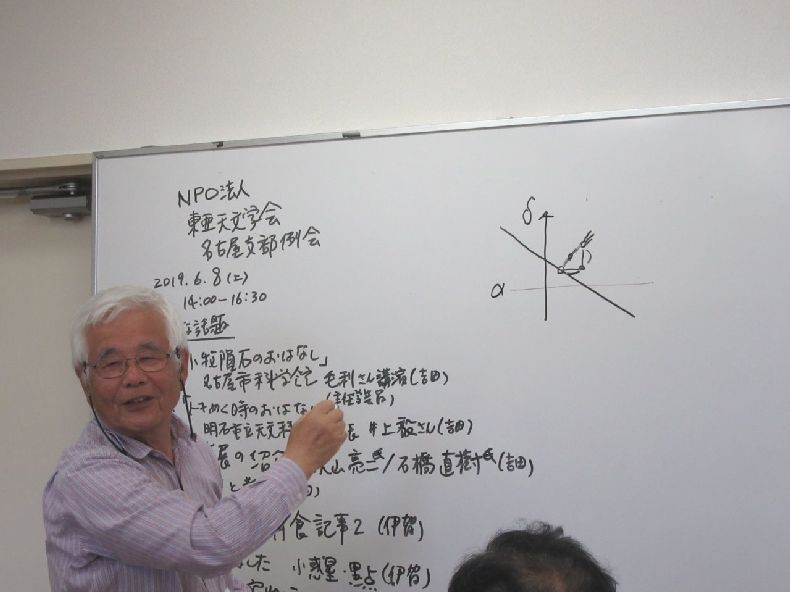 NPO法人
東亜天文学会
名古屋支部例会
2019.6.8(土)
14:00-16:30
な話題
小牧隕石のおはなし」
名古屋市科学館 毛利さん講演(吉田)
(主任学芸員)
ときめく時のおはなし
明石市立天文科 井上毅さん(吉田)
展の紹介 山亮二氏/石橋直樹氏(吉田)
と
食記事2 (伊賀)
した 小惑星・黒点(伊賀)
δ
α